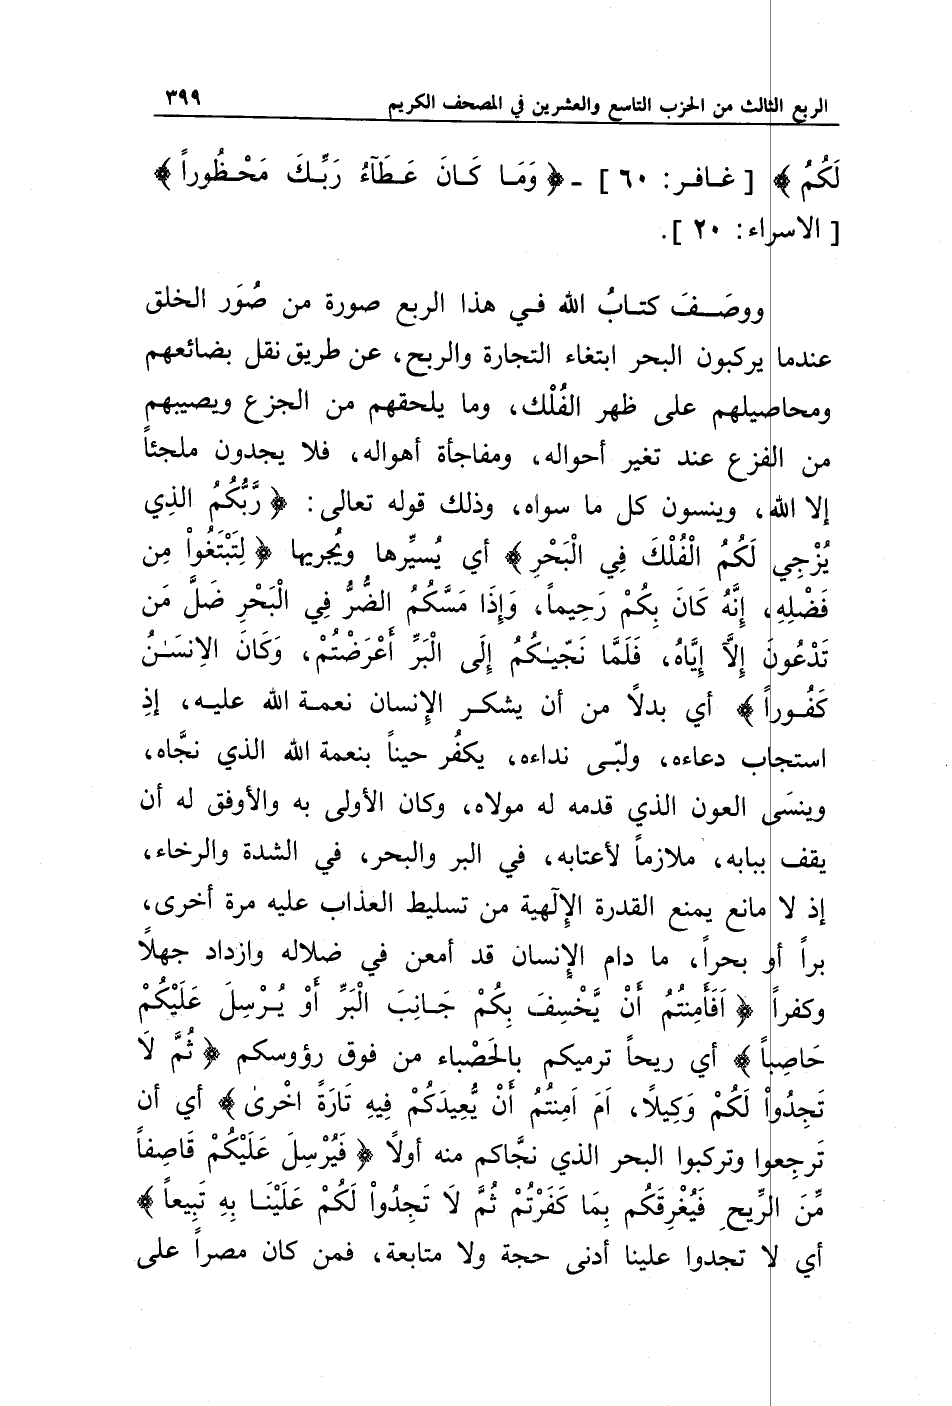 الربع الثالث من الحزب التاسع والعشرين في المصحف الكريم ٣٩٩
لَكُمُ ﴾ [ غـافـر: ٦٠ ] ـ ﴿ وَمَـا كَـانَ عَـطَآءُ رَبِّـكَ مَحْـظُوراً ﴾
[ الاسراء: ٢٠ ].
ووصَــفَ كتـابُ الله فـي هذا الربع صورة من صُوَر الخلق
عندما يركبون البحر ابتغاء التجارة والربح، عن طريق نقل بضائعهم
ومحاصيلهم على ظهر الفُلْك، وما يلحقهم من الجزع ويصيبهم
من الفزع عند تغير أحواله، ومفاجأة أهواله، فلا يجدون ملجئاً
إلا الله، وينسون كل ما سواه، وذلك قوله تعالى: ﴿ رَّبُّكُمُ الذِي
يُزْجِي لَكُمُ الْفُلْكَ فِي الْبَحْرِ ﴾ أي يُسيِّرها ويُجريها ﴿ لِتَبْتَغُواْ مِن
فَضْلِهِ، إِنَّهُ كَانَ بِكُمْ رَحِيماً، وَإِذَا مَسَّكُمُ الضُّرُّ فِي الْبَحْرِ ضَلَّ مَن
تَدْعُونَ إِلاَّ إِيَّاهُ، فَلَمَّا نَجّيٰكُمُ إِلَى الْبَرِّ أَعْرَضْتُمْ، وَكَانَ الاِنسَـٰنُ
كَفُـوراً ﴾ أي بدلاً من أن يشكـر الإنسان نعمـة الله عليـه، إذِ
استجاب دعاءه، ولبّـى نداءه، يكفُر حيناً بنعمة الله الذي نجَّاه،
وينسَى العون الذي قدمه له مولاه، وكان الأولى به والأوفق له أن
يقف ببابه، ملازماً لأعتابه، في البر والبحر، في الشدة والرخاء،
إذ لا مانع يمنع القدرة الإلٓهية من تسليط العذاب عليه مرة أخرى،
براً أو بحراً، ما دام الإنسان قد أمعن في ضلاله وازداد جهلاً
وكفراً ﴿ اَفَأَمِنتُمُ أَنْ يَّخْسِفَ بِكُمْ جَـانِبَ الْبَرِّ أَوْ يُـرْسِلَ عَلَيْكُمْ
حَاصِباً ﴾ أي ريحاً ترميكم بالحَصْباء من فوق رؤوسكم ﴿ ثُمَّ لاَ
تَجِدُواْ لَكُمْ وَكِيلًا، اَمَ اَمِنتُمُ أَنْ يُّعِيدَكُمْ فِيهِ تَارَةً اخْرىٰ ﴾ أي أن
تَرجِعوا وتركبوا البحر الذي نجَّاكم منه أولاً ﴿ فَيُرْسِلَ عَلَيْكُمْ قَاصِفاً
مِّنَ الرِّيحِ فَيُغْرِقَكُم بِمَا كَفَرْتُمْ ثُمَّ لاَ تَجِدُواْ لَكُمْ عَلَيْنَـا بِهِ تَبِيعاً ﴾
أي لا تجدوا علينا أدنى حجة ولا متابعة، فمن كان مصراً على